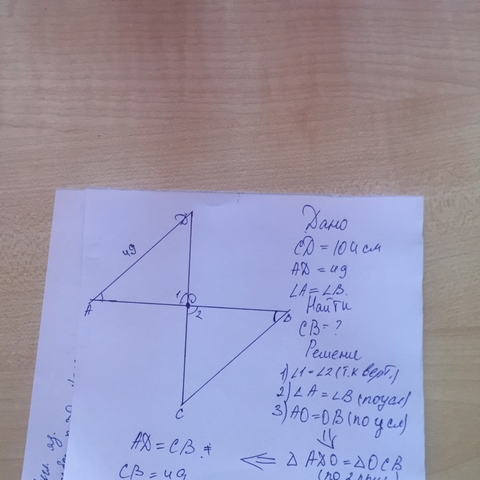 Дано
CD = 104 см
AD = 49
∠A = ∠B.
Найти
CB = ?
Решение
1) ∠1 = ∠2 (т.к верт.)
2) ∠A = ∠B (по усл)
3) AO = OB (по усл)
⇓
△ ADO = △ OCB
⇐
AD = CB.
CB = 49
D
49
A
1
2
B
C